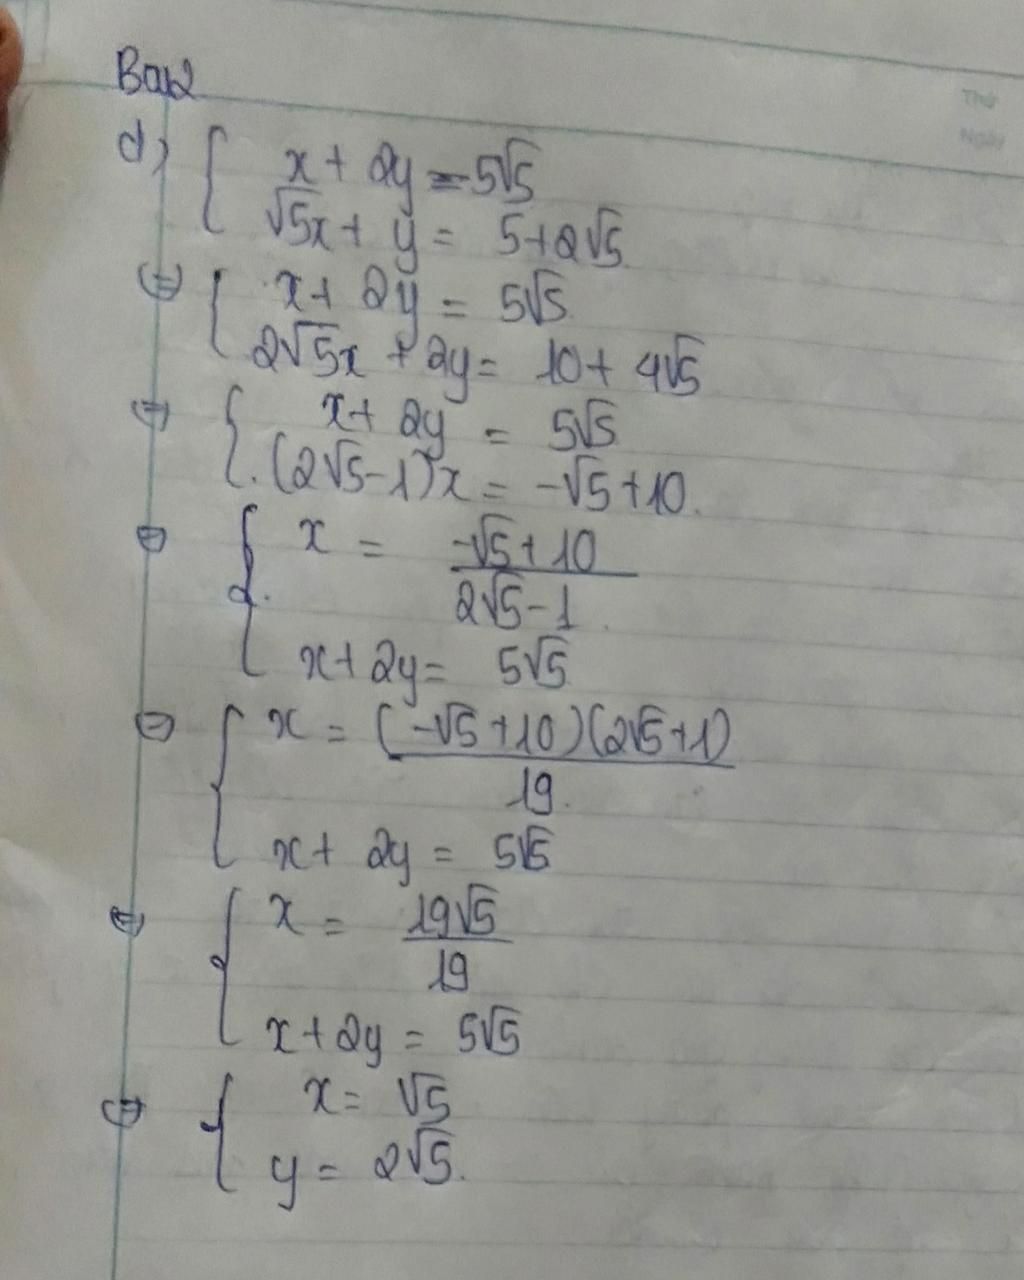 Bài 2
d) { x + 2y = 5√5
√5x + y = 5+2√5
⇔ { x + 2y = 5√5
2√5x + 2y = 10 + 4√5
⇔ { x + 2y = 5√5
(2√5-1)x = -√5+10.
⇔ { x = -√5+10
2√5-1
x + 2y = 5√5
⇔ { x = (-√5+10)(2√5+1)
19.
x + 2y = 5√5
⇔ { x = 19√5
19
x + 2y = 5√5
⇔ { x = √5
y = 2√5.
Thứ
Ngày